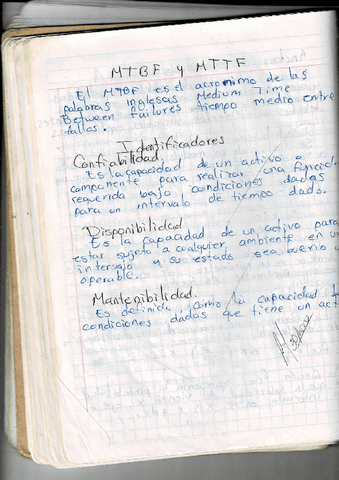 MTBF y MTTF
El MTBF es el acronimo de las
palabras inglesas Medium Time
Between failures tiempo medio entre
fallos.
Identificadores
Confiabilidad
Es la capacidad de un activo o
componente para realizar una función
requerida bajo condiciones dadas
para un intervalo de tiempo dado.
Disponibilidad
Es la capacidad de un activo para
estar sujeto a cualquier ambiente en un
intervalo y su estado sea bueno u
operable.
Mantenibilidad.
Es definida como la capacidad
condiciones dadas que tiene un act